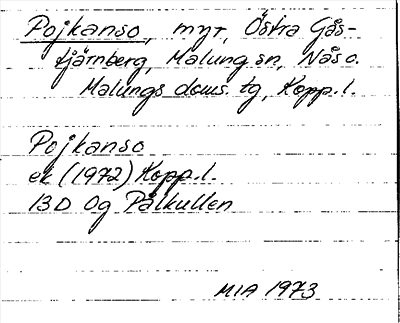 Pojkanso, myr, Östra Gås-
tjärnberg, Malung sn, Nås o.
Malungs doms. tg, Kopp. l.
Pojkanso
ek (1972) Kopp. l.
13D 0g Pålkullen
MIA 1973